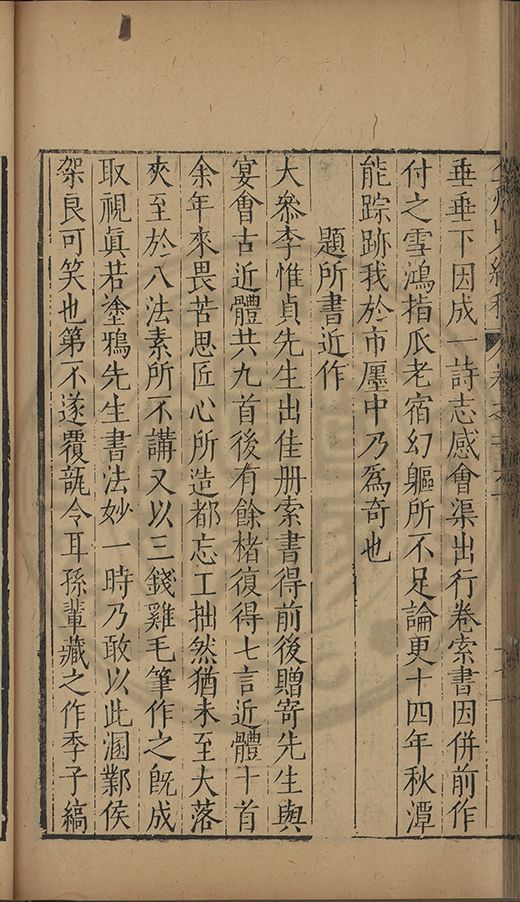 垂垂下因成一詩志感會渠出行卷索書因併前作
付之雪鴻指爪老宿幻軀所不足論更十四年秋潭
能踪跡我於市廛中乃爲奇也
題所書近作
大叅李惟貞先生出佳册索書得前後贈寄先生與
宴會古近體共九首後有餘楮復得七言近體十首
余年來畏苦思匠心所造都忘工拙然猶未至大落
夾至於八法素所不講又以三錢雞毛筆作之旣成
取視眞若塗鴉先生書法妙一時乃敢以此溷鄴侯
架良可笑也第不遂覆瓿令耳孫輩藏之作季子縞